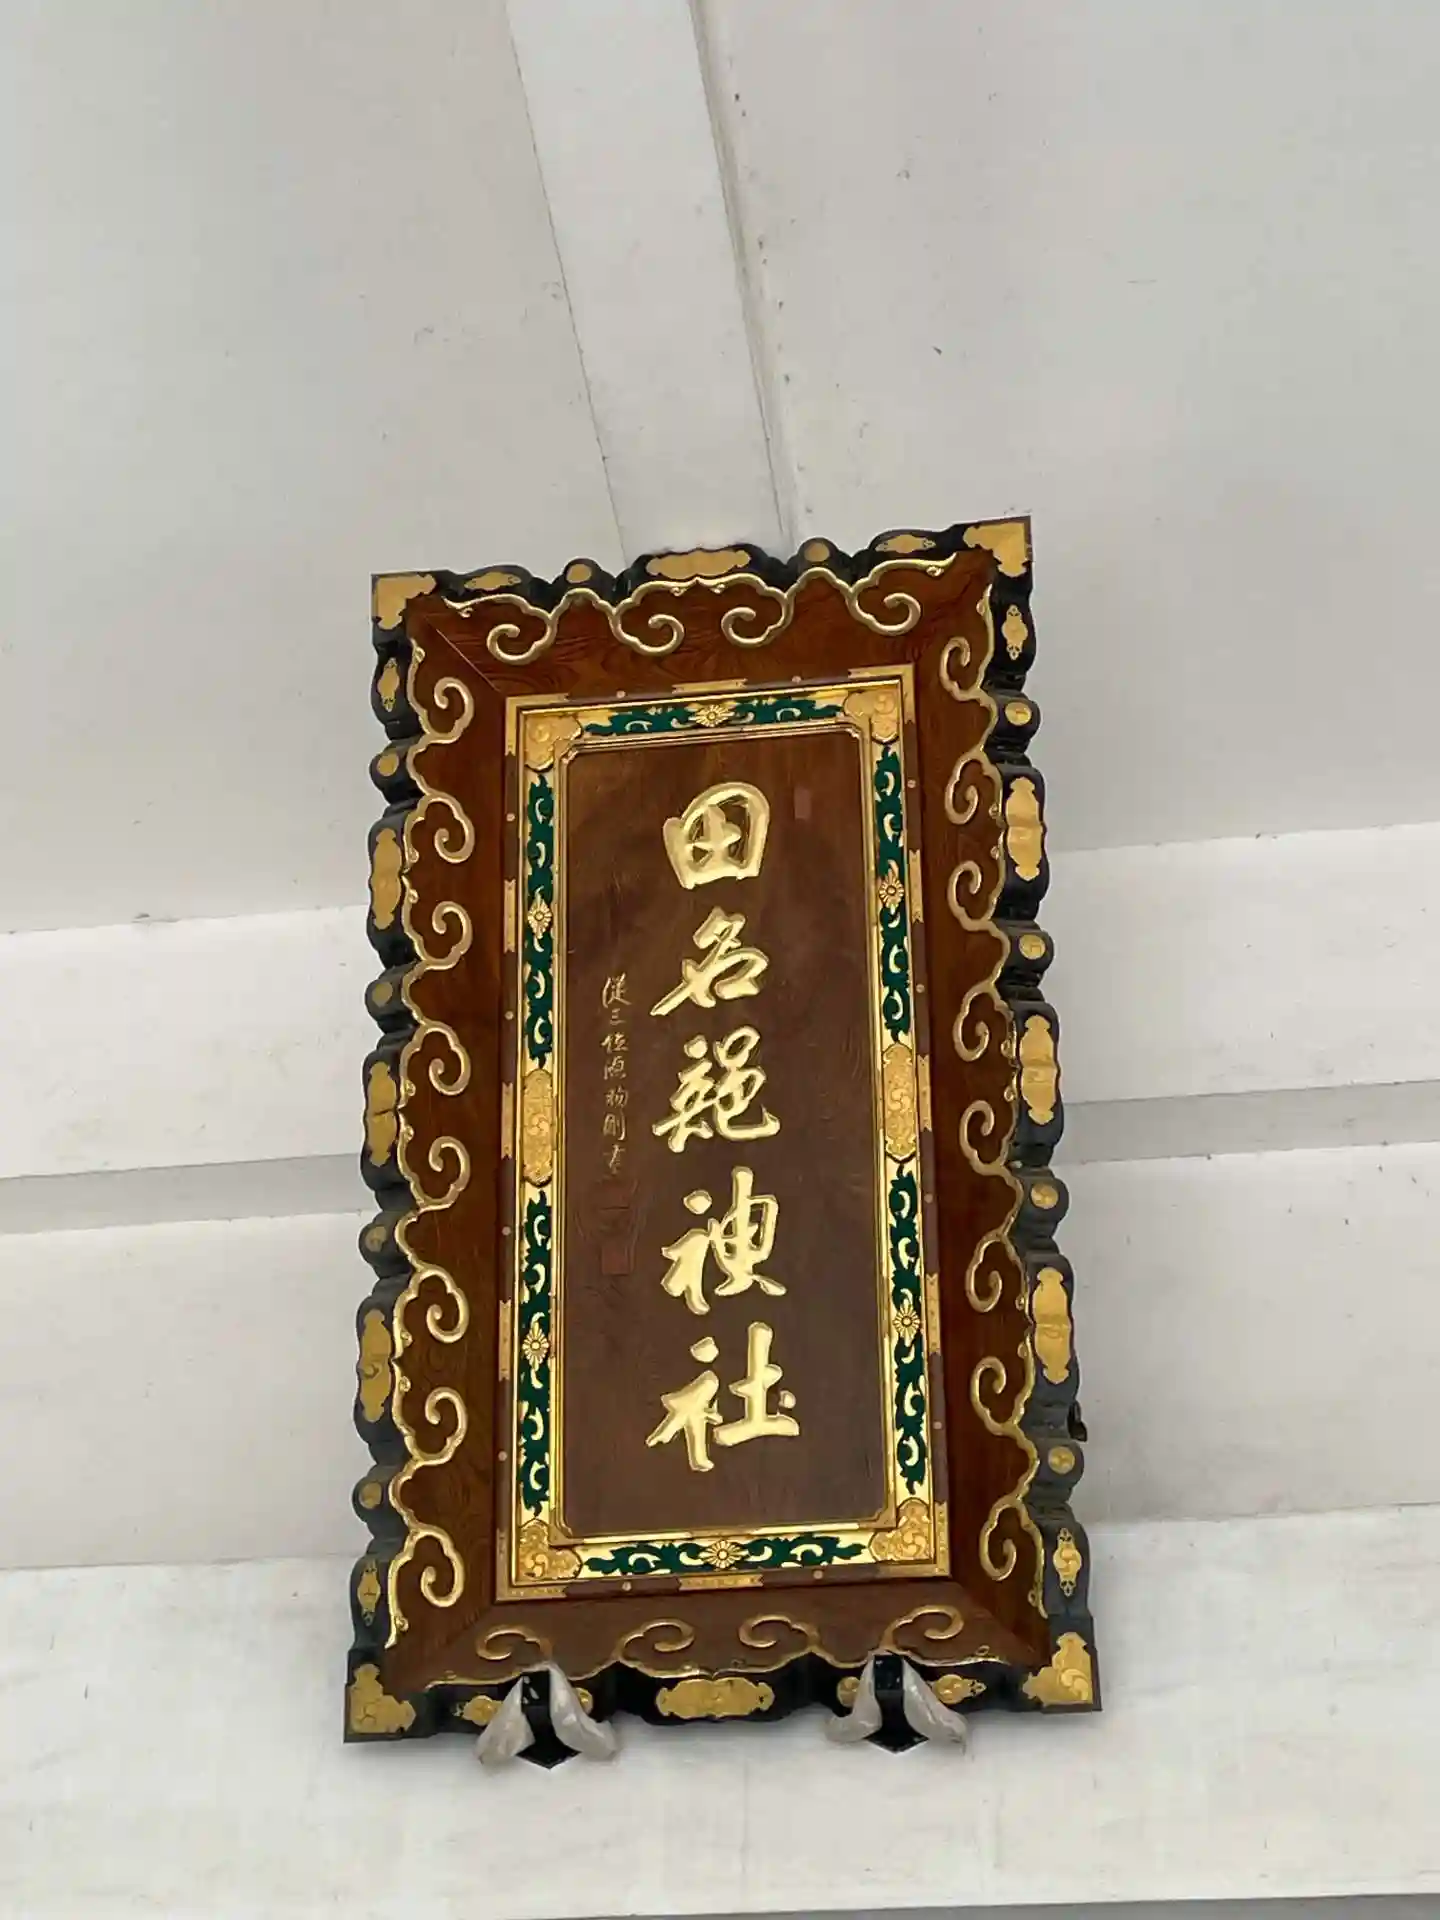 田名部神社
從三位源利剛書